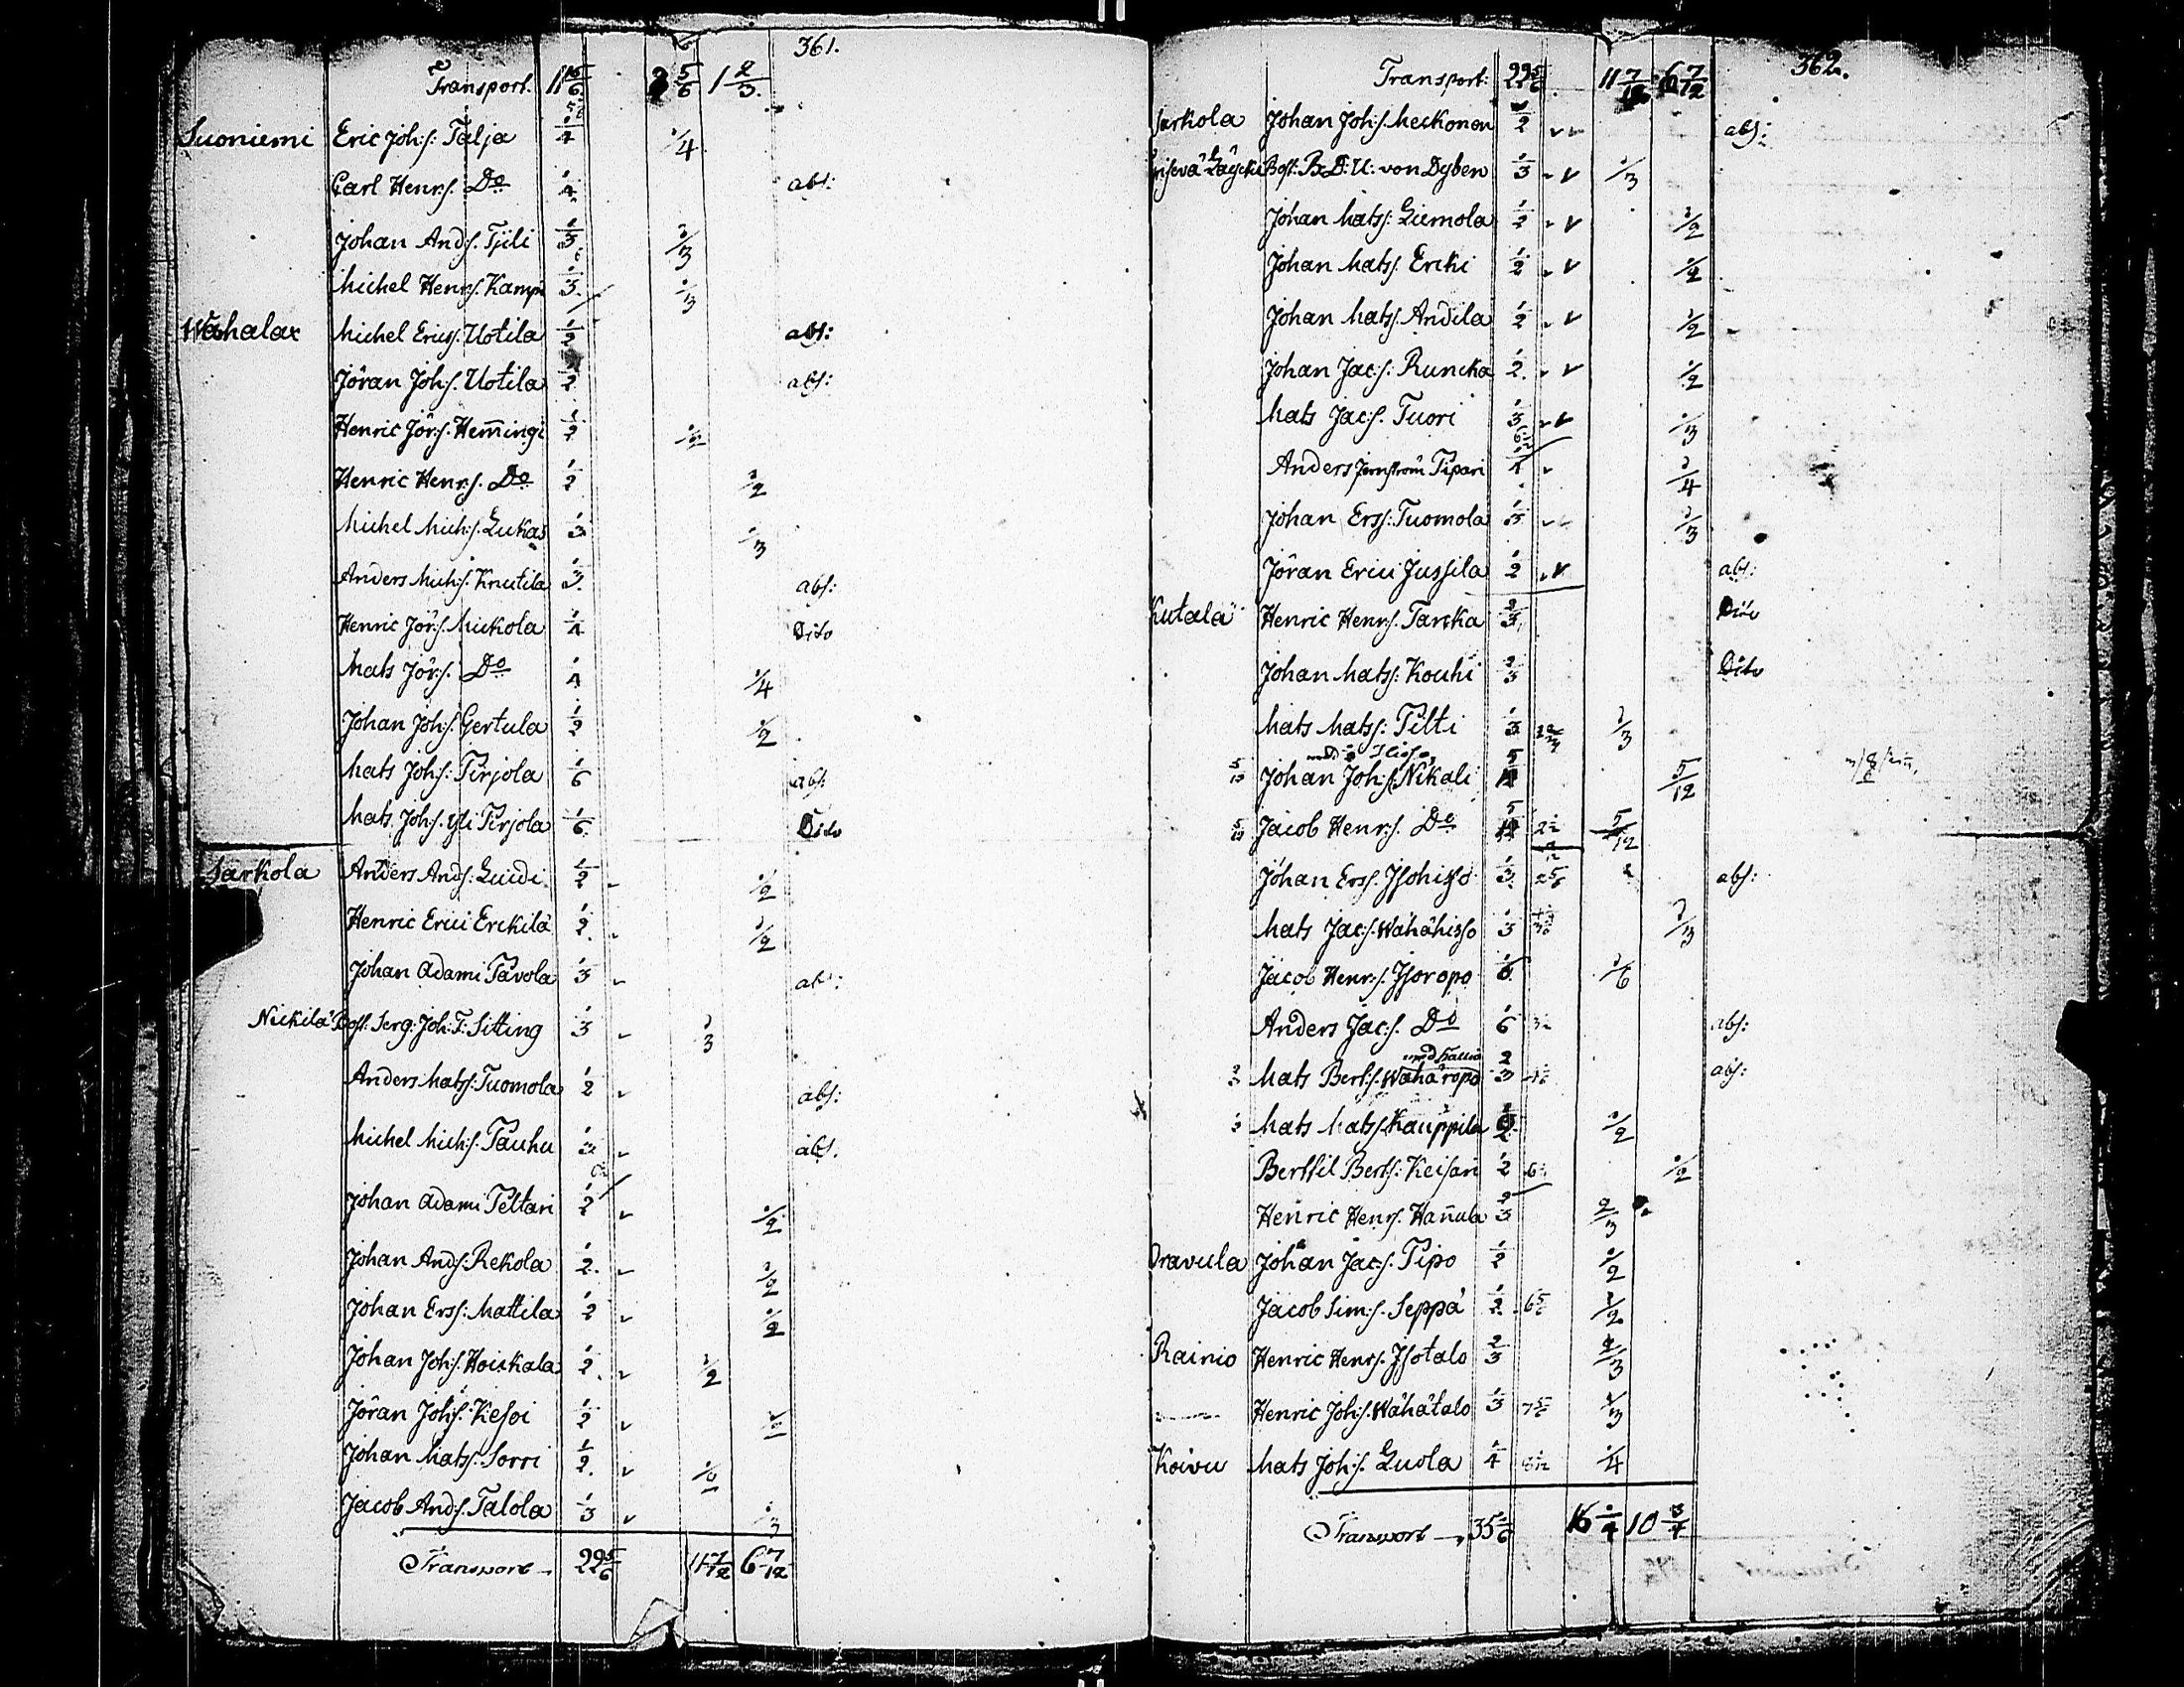 361.
Transport. 11 5/6 5/6 1 2/3.
Suoniemi Eric Joh:s: Talja 1/4 1/4
Carl Henr:s. Do 1/4 abs:
Johan And:s. Tjili 1/3 1/3
Michel Henr:s. Kampi 1/3 1/3
Michel Erics. Uotila 1/2 abs:
Jöran Joh:s. Uotila 1/2 abs:
Henric Jör:s. Hem̅ingi 1/2 1/2
Henric Henr:s. Do 1/2 1/2
Michel Mich:s. Lukas 1/3 1/3
Anders Mich:s. Knutila 1/3. abs:
Henric Jör:s. Mickola 1/4 Dito
Mats Jör:s. Do 1/4 1/4
Johan Joh:s. Gertula 1/2 1/2
Mats Joh:s: Pirjola 1/6 abs:
Mats Joh:s. yli Pirjola 1/6 Dito
Sarkola Anders And:s: Luidi 1/2 1/2
Henric Erici Erckilä 1/2 1/2
Johan Adami Pavola 1/3 abs:
Nickilä Bost: Serg: Joh: T: Sitting 1/3 1/3
Anders Mats: Tuomola 1/2 abs:
Michel Mich:s. Pauhu abs.
Johan Adami Peltari 1/2 1/2
Johan And:s: Rekola 1/2 1/2
Johan Ers: Mattila 1/2 1/2
Johan Joh:s. Hoickala 1/2 1/2
Jöran Joh:s. Kesoi 1/2 1/2
Johan Mats: Sorri 1/2
Jacob And:s. Talola 1/3 1/3
Transport 22 5/6 11 7/12 6 7/12
362.
Transport: 22 5/6 11 7/12 6 7/12
Sarkola Johan Joh:s. Meckonen 1/2 abs:
Bost: B: D: U: von Dyben 1/3 1/3
Johan Mats: Liemola 1/2 1/2
Johan Mats: Ercki 1/2 1/2
Johan Mats. Andila 1/2 1/2
Johan Jac:s. Runcka 1/2 1/2
Mats Jac:s. Tuori 1/3 1/3
Anders Jernström Pipari 1/4 1/4
Johan Ers: Tuomola 1/3 1/3
Jöran Erici Jussila 1/2 abs:
Kutala Henric Henr:s. Tarcka 2/3 Dito
Johan Mats: Kouhi 2/3 Dito
Mats Mats: Pilti 1/3 1/3
Johan Joh:s. Nikali 5/12 5/12
Jacob Henr:s. Do 5/12 5/12
Johan Ers. Isohisso 1/3 abs:
Mats Jac:s. Wähähisso 1/3 1/3
Jacob Henr:s. Isoropo 1/6 1/6
Anders Jac:s. Do 1/6 abs:
Mats Bert:s. Wähäropo 2/3 abs:
Mats Mats. Kauppila 1/2 1/2
Berttil Bert:s: Keisari 1/2 1/2
Henric Henr:s. Han̅ula 2/3 2/3
Oravula Johan Jac:s. Pipo 1/2 1/2
Jacob Sim:s. Seppä 1/2 1/2
Rainio Henric Henr:s. Isotalo 2/3 2/3
Henric Joh:s. Wähätalo 1/3 1/3
Koivu Mats Joh:s. Luola 1/4 1/4
Transport 35 1/6 16 1/4 10 3/4